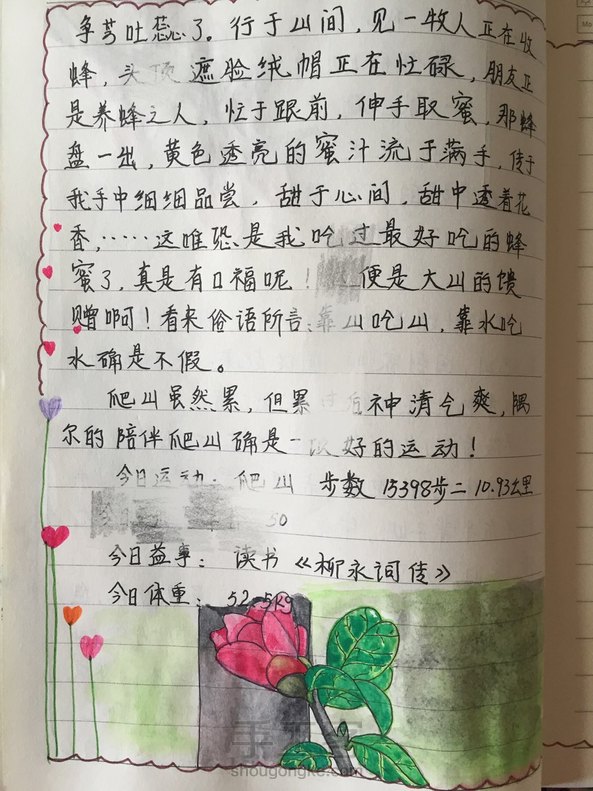 争芳吐蕊了。行于山间，见一牧人正在收
蜂，头顶遮脸绒帽正在忙碌，朋友正
是养蜂之人，忙于跟前，伸手取蜜，那蜂
盘一出，黄色透亮的蜜汁流于满手，传于
我手中细细品尝，甜于心间，甜中透着花
香，……这唯恐是我吃过最好吃的蜂
蜜了，真是有口福呢！便是大山的馈
赠啊！看来俗语所言：靠山吃山，靠水吃
水确是不假。
爬山虽然累，但累过后神清气爽，隅
尔的陪伴爬山确是一 好的运动！
今日运动：爬山 步数 15398步二10.93公里
50
今日益事：读书《柳永词传》
今日体重：52.5kg
手工客
shougongke.com